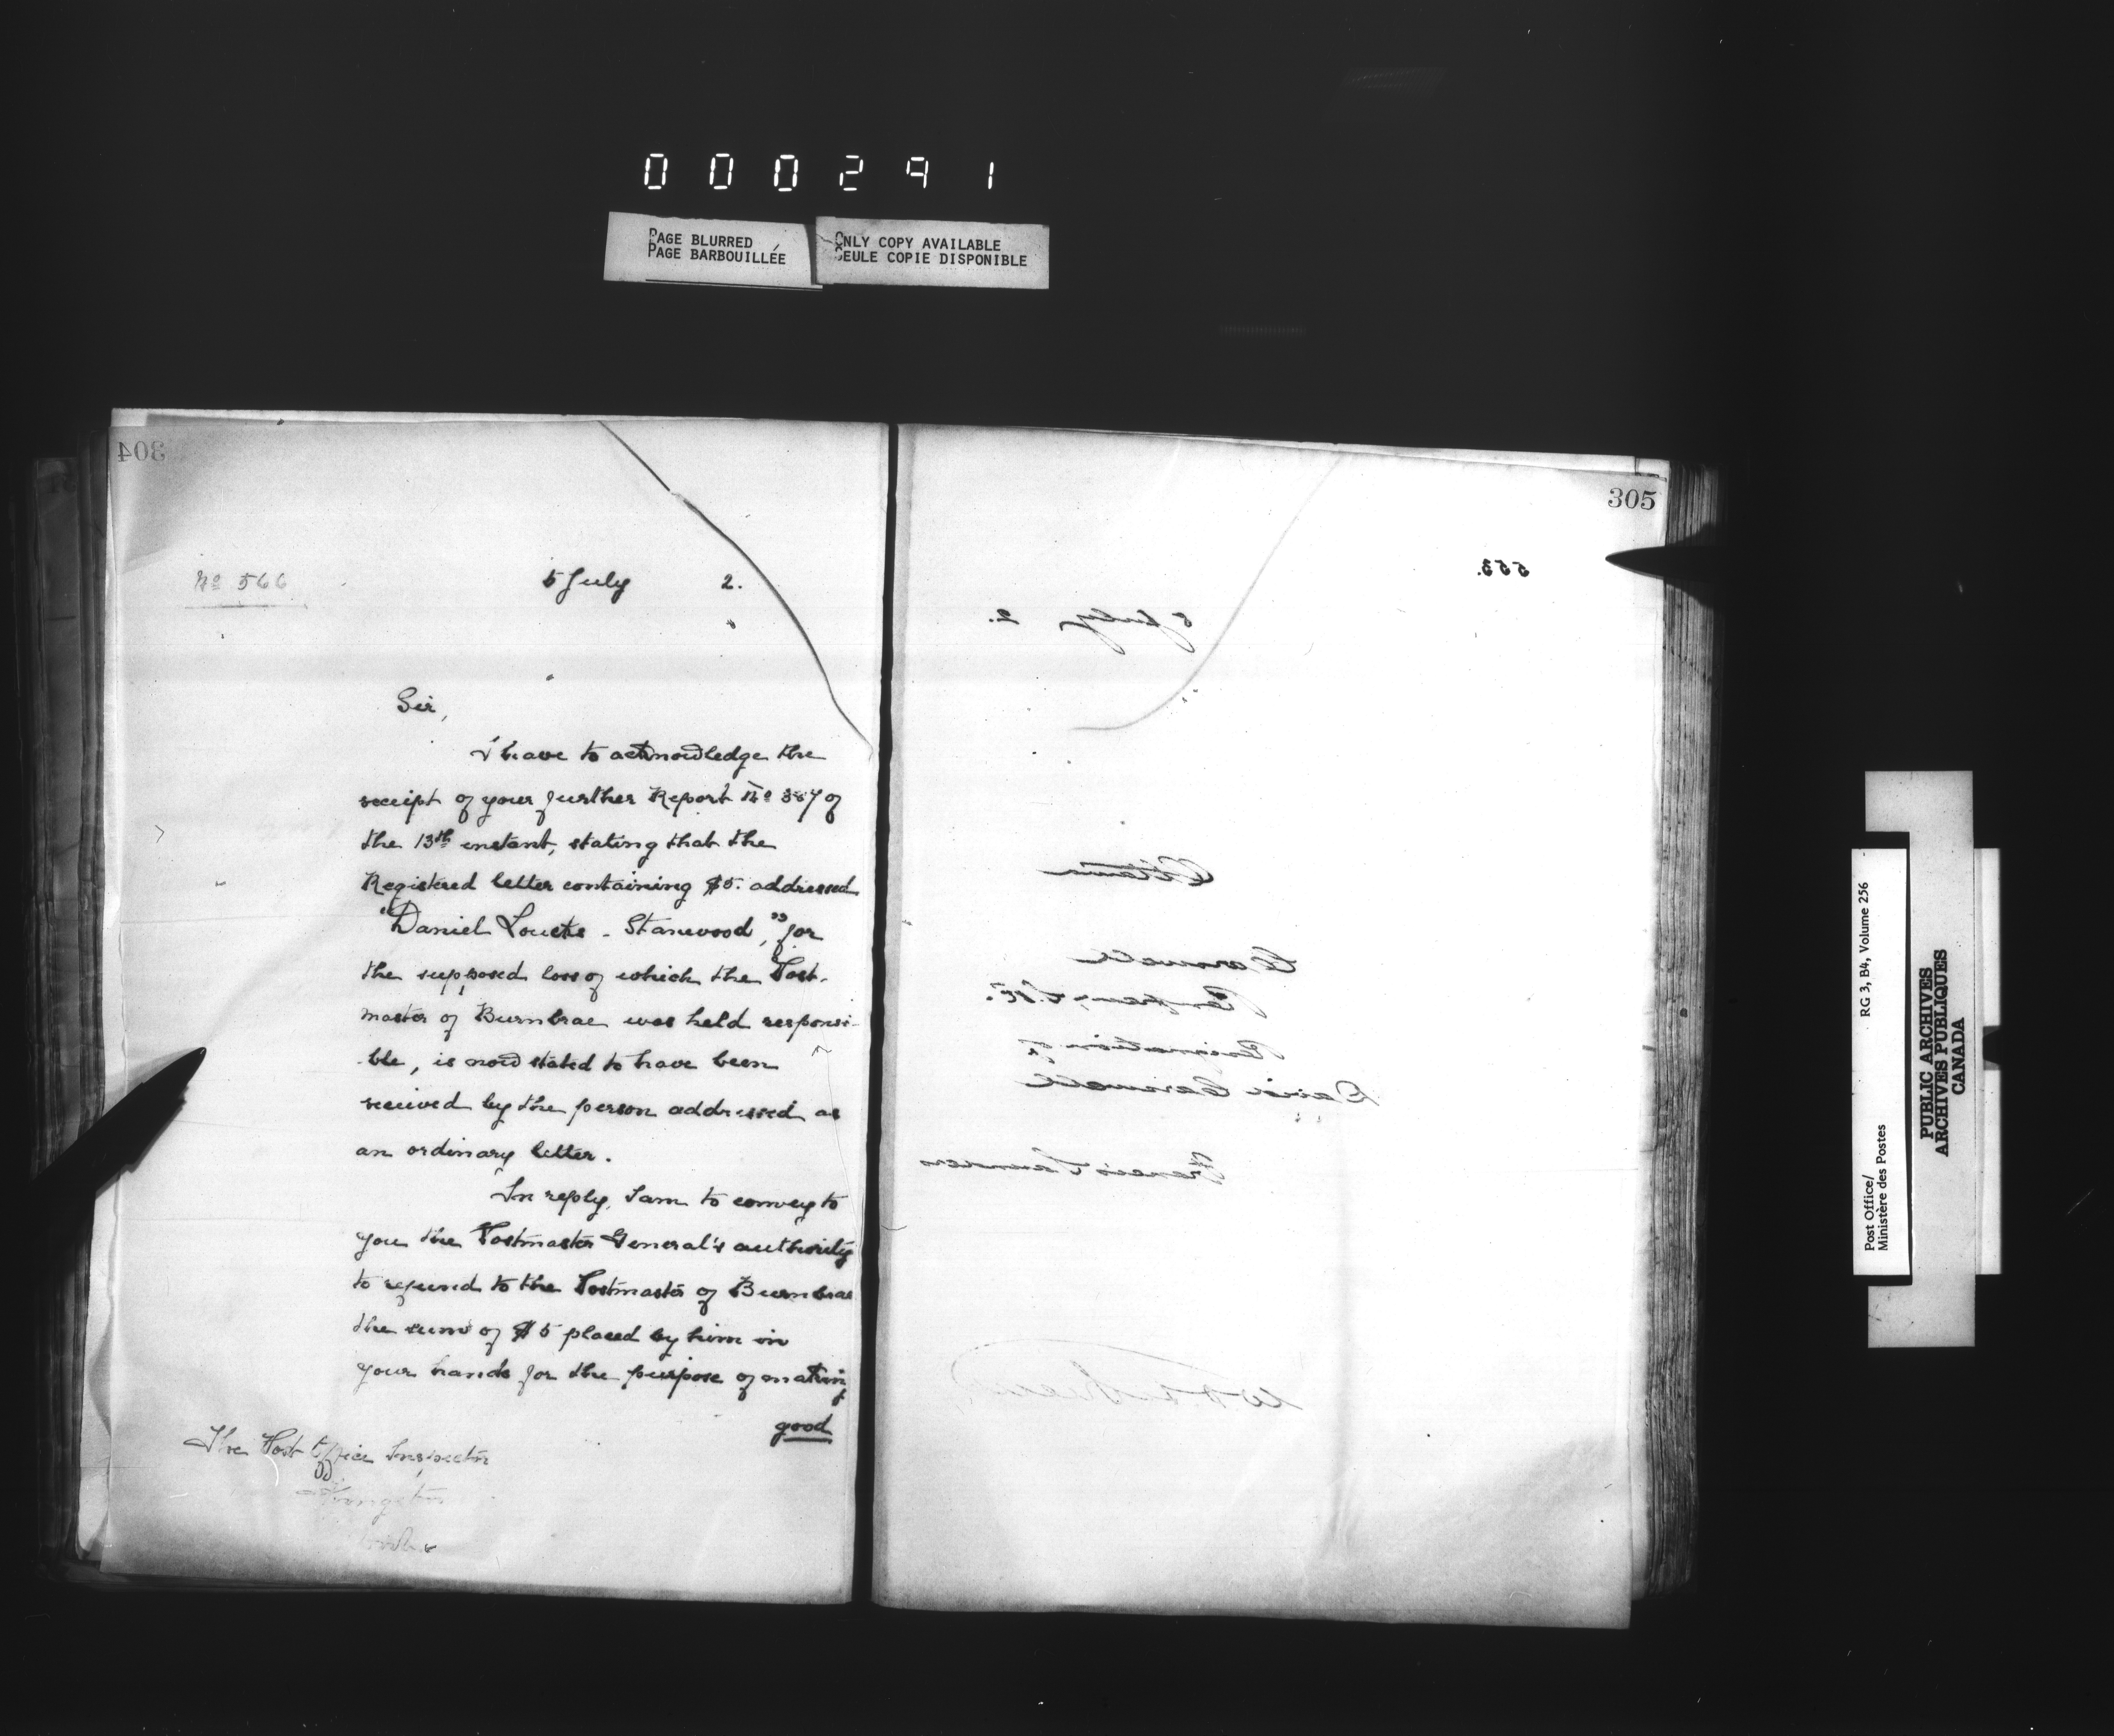 000291
PAGE BLURRED
PAGE BARBOUILLÉE
ONLY COPY AVAILABLE
SEULE COPIE DISPONIBLE
304
No 566
5 July 2.
Sir,
I have to acknowledge the
receipt of your further Report No 387 of
the 13th instant, stating that the
Registered letter containing $5. addressed
"Daniel Loucks - Stanwood," for
the supposed loss of which the Post-
master of Burnbrae was held responsi-
ble, is now stated to have been
received by the person addressed as
an ordinary letter.
In reply, I am to convey to
you the Postmaster General's authority
to refund to the Postmaster of Burnbrae
the sum of $5 placed by him in
your hands for the purpose of making
good
The Post Office Inspector
Kingston
305
553.
5 July 2.
Ottawa
Resignation of
David
Francis
Post Office/
Ministère des Postes
RG 3, B4, Volume 256
PUBLIC ARCHIVES
ARCHIVES PUBLIQUES
CANADA